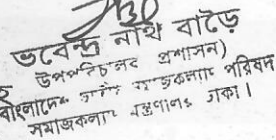 ভবেন্দ্র নাথ বাড়ৈ
উপপরিচালক প্রশাসন)
বাংলাদেশ জাতীয় সমাজকল্যাণ পরিষদ
সমাজকল্যাণ মন্ত্রণালয় ঢাকা।